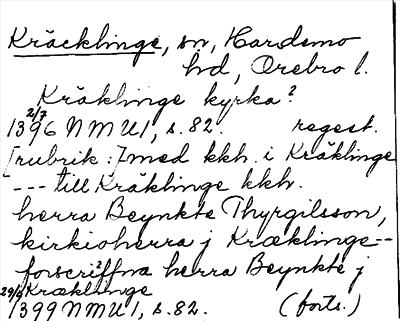 Kräcklinge, sn, Hardemo
hd, Örebro l.
Kräklinge kyrka?
2/7
1396 NMU1, s. 82. regest.
[rubrik:] med kkh. i Kräklinge
--- till Kräklinge kkh.
herra Beynkte Thyrgilsson,
kirkioherra j Kræklinge--
forscriffna herra Beynkte j
29/9 Kræklinge
1399 NMU1, s. 82. (forts.)